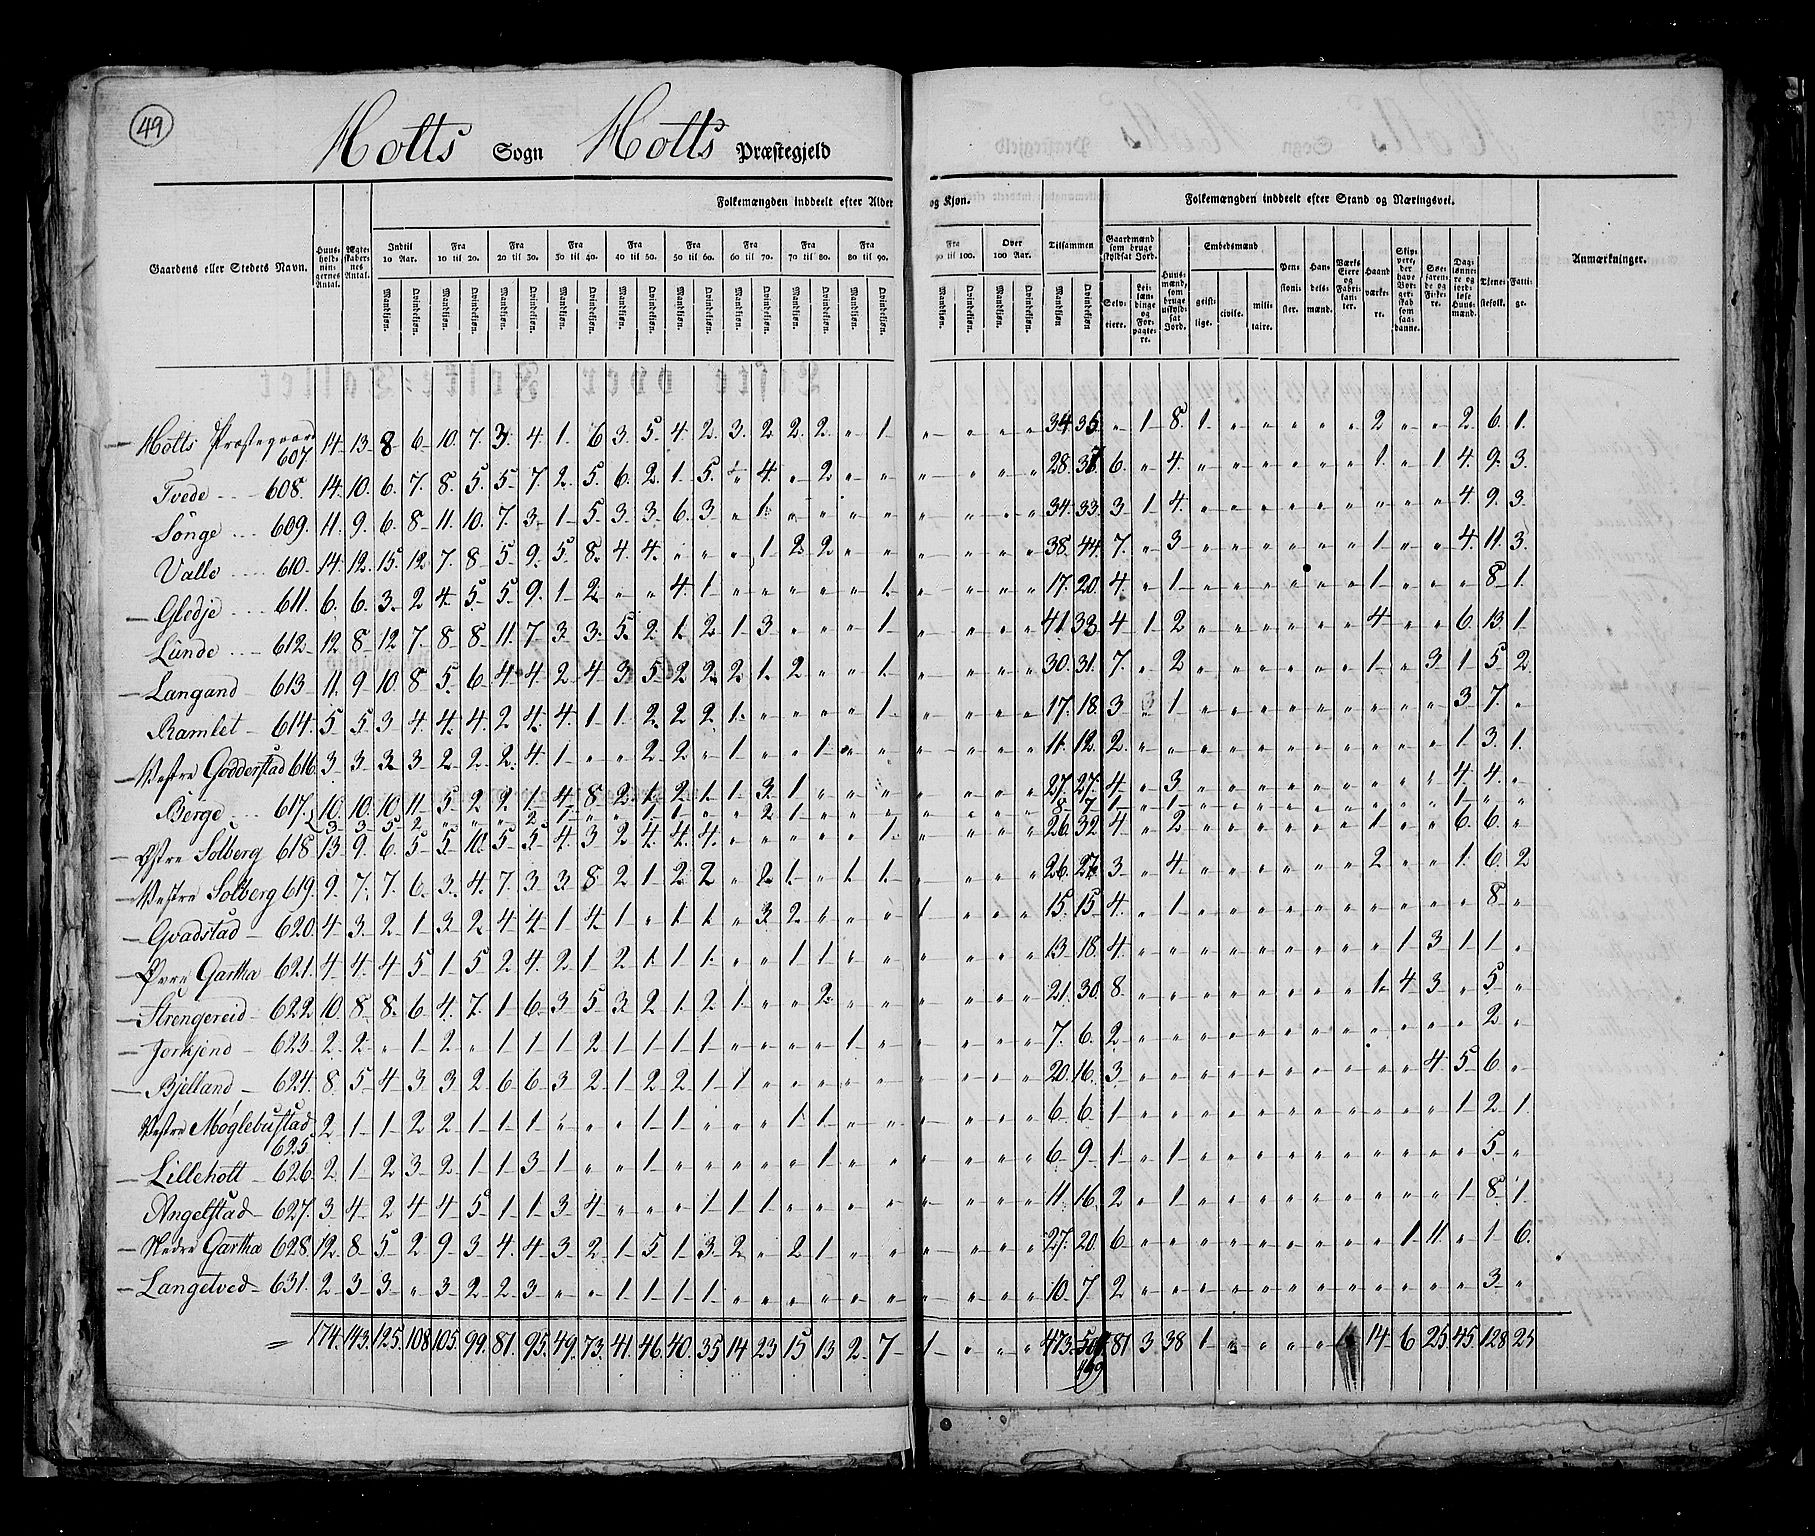 49
Holts Sogn Holts Præstegjeld
Folkemængden inddeelt efter Alder og Kjøn. Folkemængden inddeelt efter Stand og Næringsvei.
Gaardens eller Stedets Navn. Huusholdningernes Antal. Ægteskabernes Antal. Indtil 10 Aar. Fra 10 til 20. Fra 20 til 30. Fra 30 til 40. Fra 40 til 50. Fra 50 til 60. Fra 60 til 70. Fra 70 til 80. Fra 80 til 90. Fra 90 til 100. Over 100 Aar. Tilsammen Gaardmænd som bruge skyldsat Jord. Huusmænd, som bruge uskyldsat Jord. Embedsmænd Pensionister. Handelsmænd. Værks Eiere og Fabrikanter. Haandværkere. Skippere, der have Borgerskab som saadanne. Søefarende og Fiskere. Daglønnere og jordløse Huusmænd. Tjenestefolk. Fattige. Anmærkninger.
Mandkjøn. Qvindekjøn. Selveiere. Leilændinge og Forpagtere. geistlige. civile. militaire.
Holts Præstegaard 607 14 13 8 6 10 7 3 4 1 6 3 5 4 2 3 2 2 2 " 1 " " " " 34 35 " 1 8 1 " " " " " 2 " " 2 6 1
Tvede 608 14 10 6 7 8 5 5 7 2 5 6 2 1 5 " 4 " 2 " " " " " " 28 37 6 " 4 " " " " " " 1 " 1 4 9 3
Songe 609 11 9 6 8 11 10 7 3 1 5 3 3 6 3 " 1 " " " " " " " " 34 33 3 1 4 " " " " " " " " " 4 9 3
Valle 610 14 12 15 12 7 8 5 9 5 8 4 4 " " " 1 2 2 " " " " " " 38 44 7 " 3 " " " " " " 1 " " 4 11 3
Gledje 611 6 6 3 2 4 5 5 9 1 2 " " 4 1 " " " " " 1 " " " " 17 20 4 " 1 " " " " " " 1 " " " 8 1
Lunde 612 12 8 12 7 8 8 11 7 3 3 5 2 1 2 1 3 " " " 1 " " " " 41 33 4 1 2 " " " " " " 4 " " 6 13 1
Langand 613 11 9 10 8 5 6 4 4 2 4 3 5 2 2 2 1 2 " " 1 " " " " 30 31 7 " 2 " " " " " " 1 " 3 1 5 2
Ramlet 614 5 5 3 4 4 4 2 4 4 1 1 2 2 2 1 " " " " 1 " " " " 17 18 3 " 1 " " " " " " " " " 3 7 "
Vestre Godderstad 616 3 3 3 3 2 2 2 4 1 " " 2 2 " 1 " " 1 " " " " " " 11 12 2 " " " " " " " " " " " 1 3 1
Berge 617 10 10 10 11 5 2 2 1 4 8 2 1 2 1 1 3 1 " " " " " " " 27 27 4 " 3 " " " " " " " " " 4 4 "
3 3 5 2 " " " 2 1 " " 1 1 " " 2 1 " " " " " " " 8 7 1 " 1 " " " " " " " " " 1 " "
Østre Solberg 618 13 9 6 5 5 10 5 5 4 3 2 4 4 4 " " " " " 1 " " " " 26 32 4 " 2 " " " " " " 1 " " 6 6 "
Vestre Solberg 619 9 7 7 6 3 4 7 3 3 8 2 1 2 2 " 2 1 " 1 1 " " " " 26 27 3 " 4 " " " " " " 2 " " 1 6 2
Gvadstad 620 4 3 2 1 3 2 4 4 1 4 1 " 1 1 " 3 2 " " " 1 " " " 15 15 4 " 1 " " " " " " " " " " 8 "
Øvre Gartha 621 4 4 4 5 1 5 2 4 2 1 2 1 1 1 " " 1 1 " " " " " " 13 18 4 " " " " " " " " " 1 3 1 1 "
Strengereid 622 10 8 8 6 4 7 1 6 3 5 3 2 1 2 1 " " 2 " " " " " " 21 30 8 " " " " " " " " 1 4 3 " 5 "
Jorkjend 623 2 2 " 1 2 " 1 1 1 2 1 1 1 1 " " " " 1 " " " " " 7 6 2 " " " " " " " " " " " " 2 "
Bjelland 624 8 5 4 3 3 2 6 6 3 2 1 2 2 1 1 " " " " " " " " " 20 16 3 " " " " " " " " " " 4 5 6 "
Vestre Møglebustad 625 2 1 1 2 2 1 1 1 " " " 1 1 " " " 1 1 " " " " " " 6 6 1 " " " " " " " " " " " 1 2 1
Lilleholt 626 2 1 2 3 2 1 1 3 1 " " 1 " " " " " 1 " " " " " " 6 9 1 " 1 " " " " " " " " " " 5 "
Angelstad 627 3 4 2 4 4 5 1 1 3 4 " " " 1 1 1 " " " " " " " " 11 16 2 " 1 " " " " " " " " " 1 8 1
Nedre Gartha 628 12 8 5 2 9 3 4 4 3 2 1 5 1 3 2 " 2 1 " " " " " " 27 20 6 " " " " " " " " " 1 11 " 1 6
Langetved 631 2 3 3 " 3 2 2 3 " " 1 1 1 1 " " " " " " " " " " 10 7 2 " " " " " " " " " " " " 3 "
= 174 143 125 108 105 99 81 95 49 73 41 46 40 35 14 23 15 13 2 7 1 " " " 473 81 3 38 1 " " " " 14 6 25 45 128 25